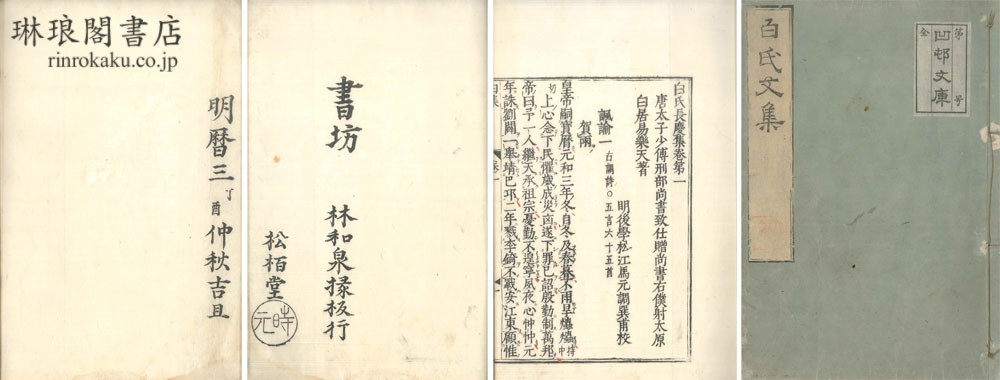 琳琅閣書店
rinrokaku.co.jp
明曆三丁酉仲秋吉旦
書坊
林和泉掾板行
松栢堂
時元
白氏長慶集卷第一
唐太子少傅刑部尚書致仕贈尚書右僕射太原
白居易樂天著
明後學松江馬元調巽甫校
諷諭一 古調詩○五言六十五首
賀雨
皇帝嗣寶曆元和三年冬自冬及春暮不雨旱爞爞
上心念下民懼歲成災凶遂下罪己詔殷勤制萬邦
帝曰予一人繼天承祖宗憂勤不遑寧夙夜心忡忡元
年誅劉闢一舉靖巴邛二年戮李錡不戰安江東顧惟
白氏文集
凹邨文庫
第
号
全